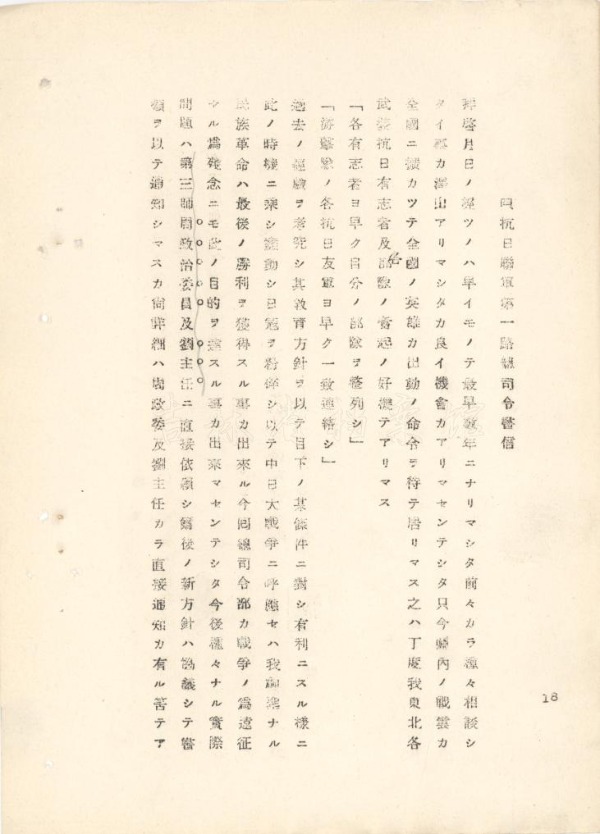 抗日聯軍第一路總司令書信
拝啓月日ノ經ツノハ早イモノテ最早數年ニナリマシタ前々カラ種々相談シ
タイ事カ澤山アリマシタカ良イ機會カアリマセンテシタ只今關內ノ戰雲カ
全國ニ擴カツテ全國ノ英雄カ出動ノ命令ヲ待テ居リマス之ハ丁度我東北各
武裝抗日有志者及各部隊ノ奮起ノ好機テアリマス
「各有志者ヨ早ク自分ノ部隊ヲ整列シ」
「游擊隊ノ各抗日友軍ヨ早ク一致連絡シ」
過去ノ經驗ヲ考究シ其教育方針ヲ以テ目下ノ某條件ニ對シ有利ニスル樣ニ
此ノ時機ニ乘シ活動シ日寇ヲ粉碎シ以テ中日大戰爭ニ呼應セハ我神聖ナル
民族革命ハ最後ノ勝利ヲ獲得スル事カ出來ル今回總司令部カ戰爭ノ爲遠征
シル爲殘念ニモ此ノ目的ヲ達スル事カ出來マセンテシタ今後種々ナル實際
問題ハ第三師周政治委員及劉主任ニ直接依賴シ爾後ノ新方針ハ協議シテ書
類ヲ以テ通知シマスカ尙詳細ハ周政委及劉主任カラ直接通知カ有ル筈テア
18